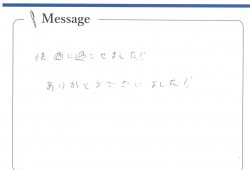 Message
快適に過ごせました!!
ありがとうございました!!